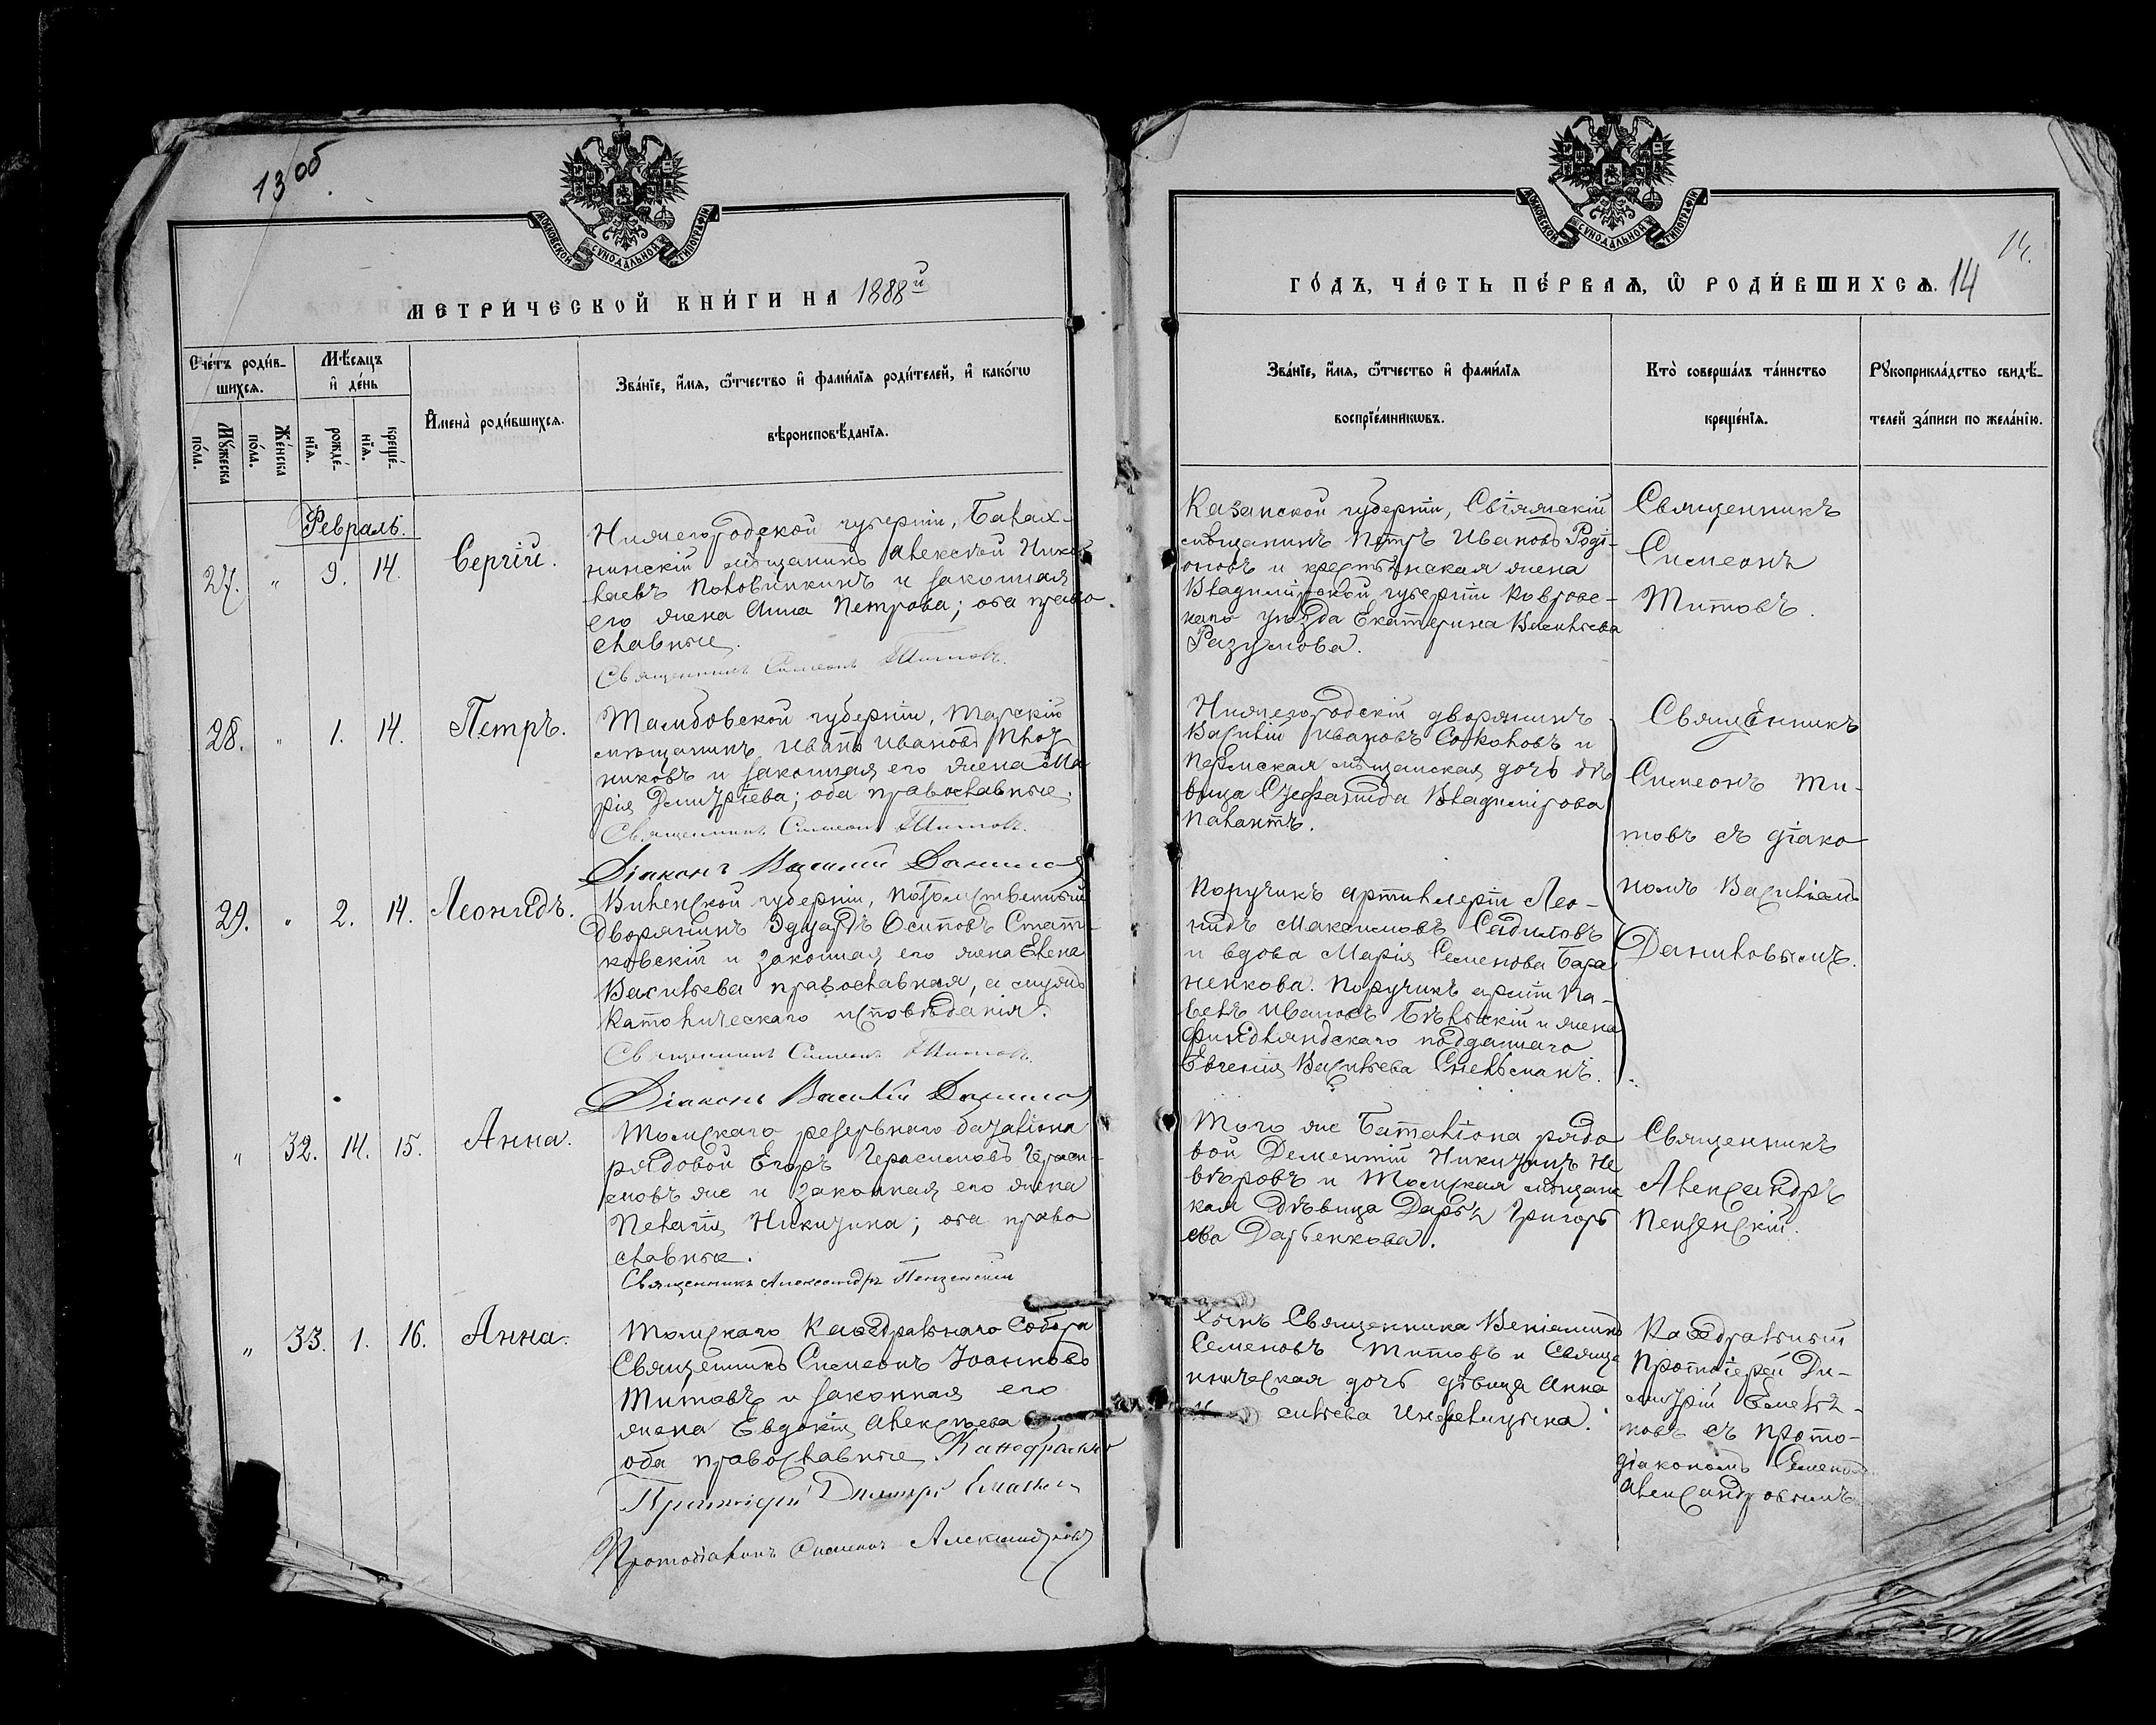 13 об.
МОСКОВСКОЙ СѴНОДАЛЬНОЙ ТИПОГРАФІИ
МЕТРИ́ЧЕСКОЙ КНИ́ГИ НА 1888й
Сче́тъ роди́в-
шихсѧ.
Мѣ́сѧцъ
и҆ де́нь
Мꙋ́жеска
по́ла.
Же́нска
по́ла.
рожде́-
нїѧ.
креще́-
нїѧ.
И҆мена̀ роди́вшихсѧ.
Зва́нїе, и҆́мѧ, ѻ҆́тчество и҆ фами́лїѧ роди́телей, и҆ како́гѡ
вѣроисповѣ́данїѧ.
Февраль.
27. " 9. 14. Сергій.
Нижегородской губерніи, Балах-
нинскій мѣщанинъ Алексѣй Нико-
лаевъ Половинкинъ и законная
его жена Анна Петрова; оба право-
славные.
Священникъ Симеонъ Титовъ.
28. " 1. 14. Петръ.
Тамбовской губерніи, Тарскій
мѣщанинъ Иванъ Ивановъ
никовъ и законная его жена Ма
рія Димитріева; оба православные.
Священникъ Симеонъ Титовъ.
Діаконъ Василій Данилов
29. " 2. 14. Леонидъ.
Виленской губерніи, потомственный
дворянинъ Эдуардъ Осиповъ Стат-
ковскій и законная его жена Елена
Васильева православная, а мужъ
Католическаго исповѣданія.
Священникъ Симеонъ Титовъ.
Діаконъ Василій Данилов
" 32. 14. 15. Анна.
Томскаго резервнаго баталіона
рядовой Егоръ Герасимовъ Гераси-
мовъ же и законная его жена
Пелагія Никитина; оба право
славные.
Священникъ Александръ Пензенскій
" 33. 1. 16. Анна.
Томскаго Каѳедральнаго Собора
Священникъ Симеонъ Іоанновъ
Титовъ и законная его
жена Евдокія Алексѣева
оба православные. Каѳедральный
Протоіерей Димитрій
Протодіаконъ Симеонъ Александровъ
МОСКОВСКОЙ СѴНОДАЛЬНОЙ ТИПОГРАФІИ
14.
ГО́ДЪ, ЧА́СТЬ ПЕ́РВАѦ, Ѡ҆ РОДИ́ВШИХСѦ. 14
Зва́нїе, и҆́мѧ, ѻ҆́тчество и҆ фами́лїѧ
воспрїе́мникѡвъ.
Кто̀ соверша́лъ та́инство
креще́нїѧ.
Рꙋкоприкла́дство свидѣ́-
телей за́писи по жела́нїю.
Казанской губерніи, Свіяжскій
мѣщанинъ Петръ Ивановъ Родi-
оновъ и крестьянская жена
Владимірской губерніи Ковровс-
каго уѣзда Екатерина Васильева
Разумова.
Священникъ
Симеонъ
Титовъ.
Нижегородскій дворянинъ
Василій Ивановъ Соколовъ и
Пермская мѣщанская дочь дѣ
вица Владимірова
Священникъ
Симеонъ Ти-
товъ съ діако
номъ Василіемъ
Даниловымъ.
Поручикъ артиллеріи Лео-
нидъ Максимовъ Садиловъ
и вдова Марія Семенова Бара
ненкова. Поручикъ артил Па-
велъ Ивановъ Бѣльскій и жена
финдляндскаго подданаго
Евгенія Васильева Снельманъ.
Того же Баталіона рядо
вой Дементій Никитинъ Не
вѣровъ и Томская мѣщанс
кая дѣвица Дарья Григорь
ева Дарьенкова.
Священникъ
Александръ
Пензенскій.
Сынъ Священника Веніаминъ
Семеновъ Титовъ и Свяще
нническая дочь дѣвица Анна
сильева Инфантьева.
Каѳедральный
Протоіерей Ди-
митрій
новъ съ прото-
діакономъ Семеномъ
Александровымъ.